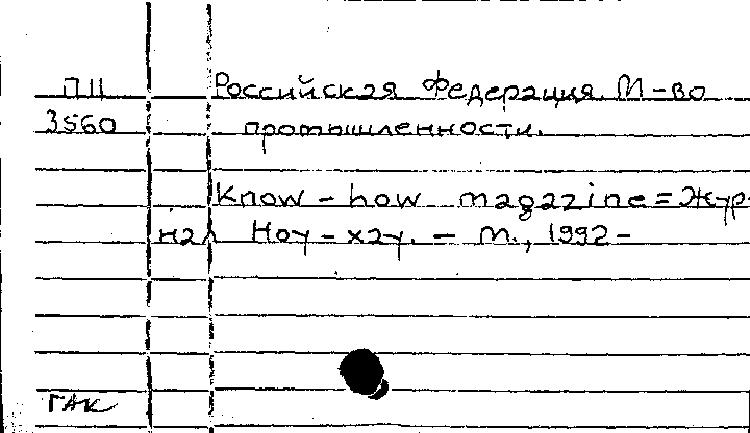 П11
3560
Российская Федерация М-во
промышленности.
Know-how magazine = Жур-
нал Ноу-хау. — М., 1992 -
ГАК